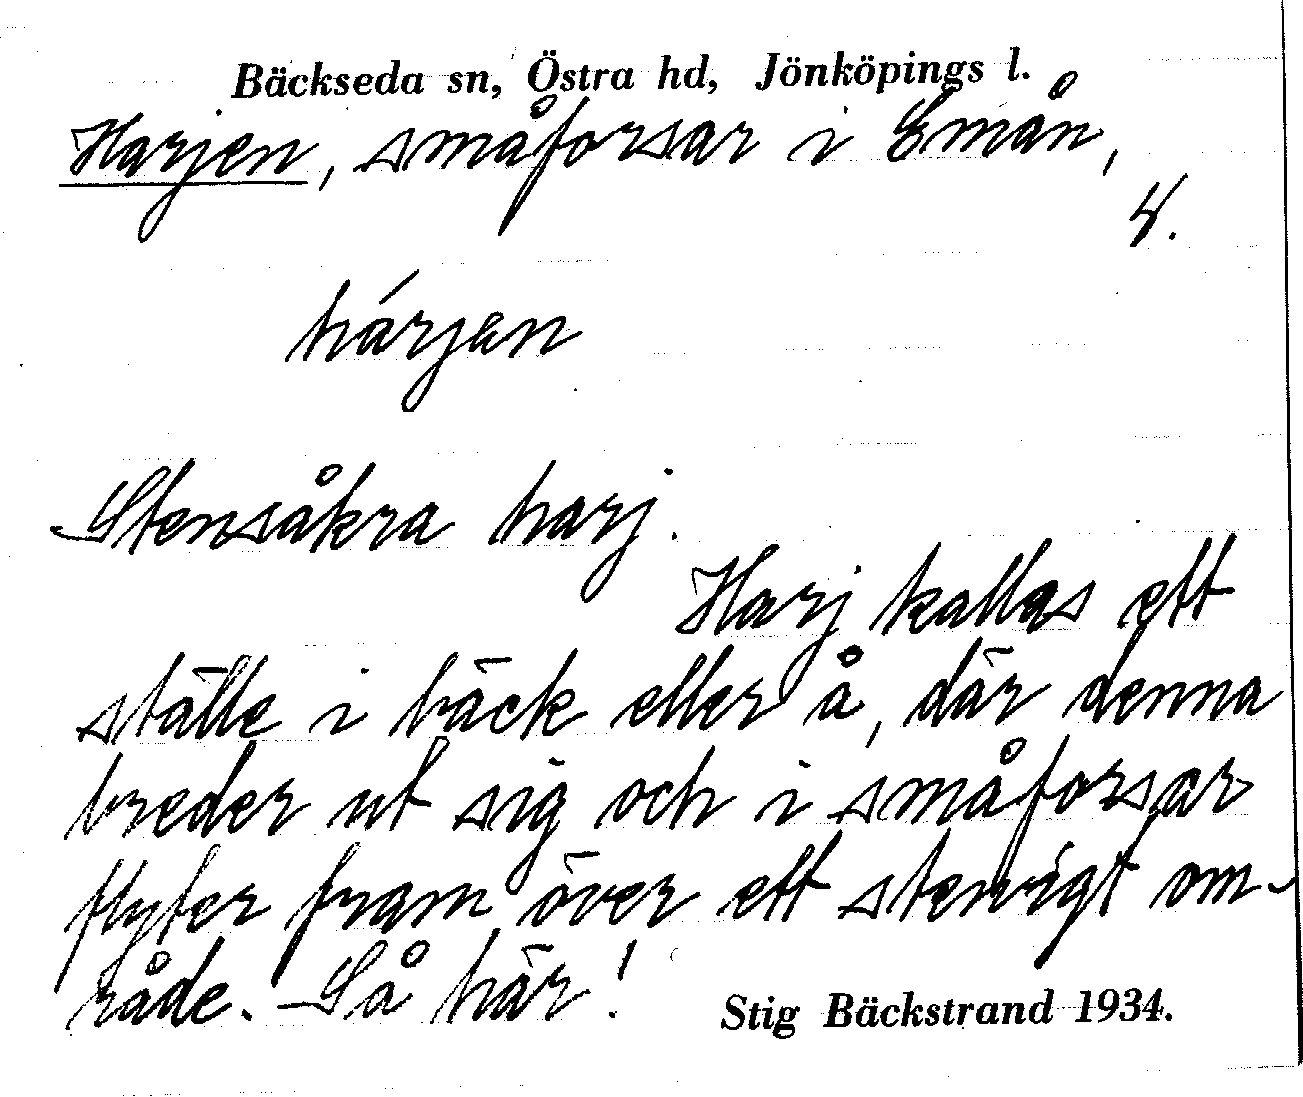 Bäckseda sn, Östra hd, Jönköpings l.
Harjen, småforsar i Emån,
4.
hárjen
Stensåkra harj.
Harj kallas ett
ställe i bäck eller å, där denna
breder ut sig och i småforsar
flyter fram över ett stenigt om-
råde. Så här!
Stig Bäckstrand 1934.